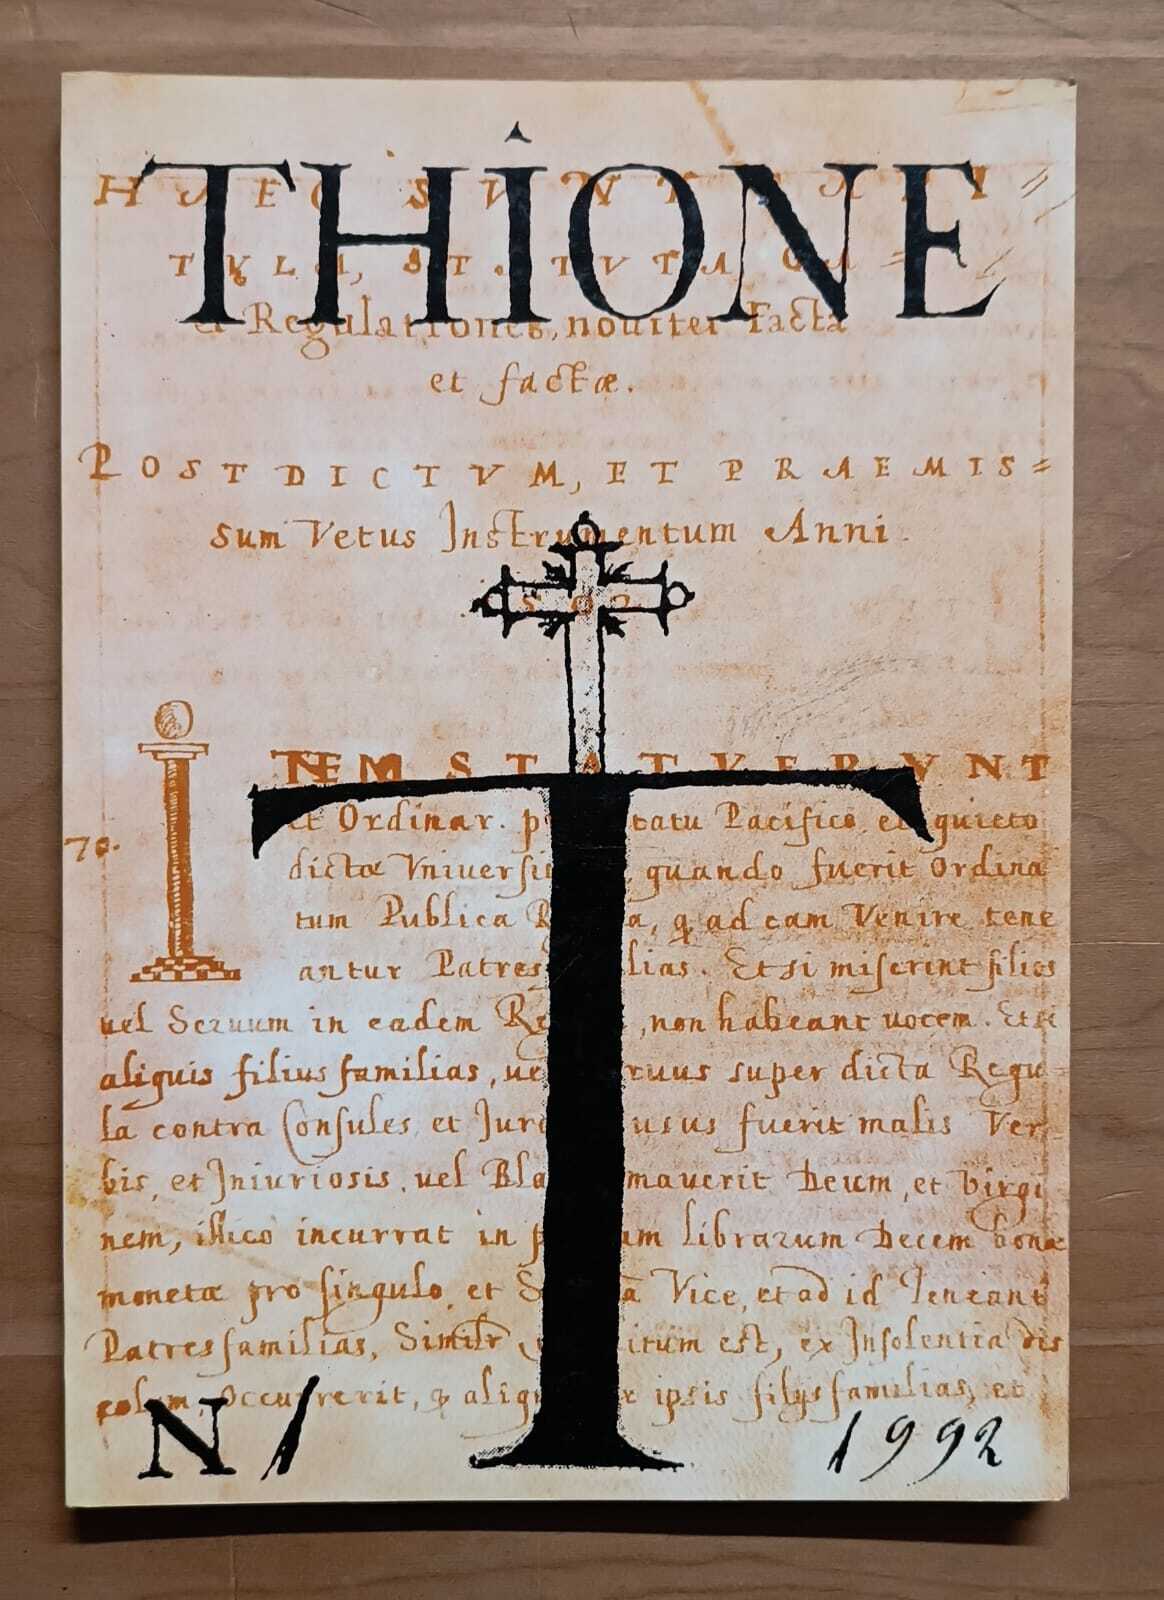 THIONE
HAEC SVNT CAPI=
TVLA, STATVTA CA=
et Regulationes, noviter Facta
et factæ.
POST DICTVM, ET PRAEMIS=
sum Vetus Instrumentum Anni.
ITEM STATVERVNT
70.
et Ordinar. tatu Pacifico, et quieto
dictæ Vniversi quando fuerit Ordina
tum Publica a, q ad eam Venire tene
antur Patres lias. Et si miserint filios
vel Servum in eadem non habeant vocem. Et si
aliquis filius familias, ruus super dicta Regu=
la contra Consules et Jur usus fuerit malis Ver=
bis, et Iniuriosis, vel Bla mauerit Deum, et Virgi
nem, illico incurrat in am librarum Decem bonæ
monetæ pro singulo, et Vice, et ad id Teneant
Patresfamilias, Similr itum est, ex Insolentia dis
colum, Occurrerit, q aliq ipsis filijsfamilias, et
T
N 1 1992